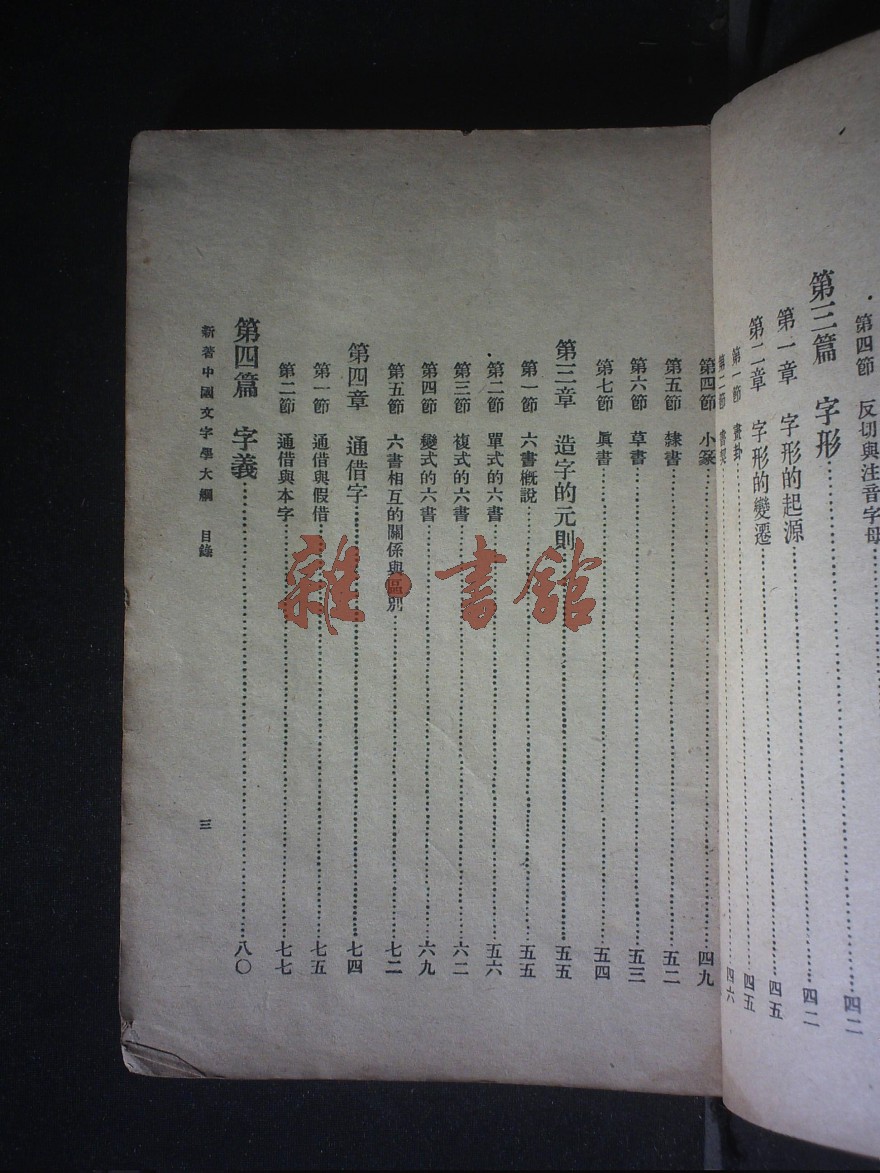 第四節　反切與注音字母…四二
第三篇　字形…四二
第一章　字形的起源…四五
第二章　字形的變遷…四五
第一節　畫卦
第二節　書契…四六
第四節　小篆…四九
第五節　隸書…五二
第六節　草書…五三
第七節　眞書…五四
第三章　造字的元則…五五
第一節　六書概說…五五
第二節　單式的六書…五六
第三節　複式的六書…六二
第四節　變式的六書…六九
第五節　六書相互的關係與區別…七二
第四章　通借字…七四
第一節　通借與假借…七五
第二節　通借與本字…七七
第四篇　字義…八〇
新著中國文字學大綱　目錄　三
雜·書館